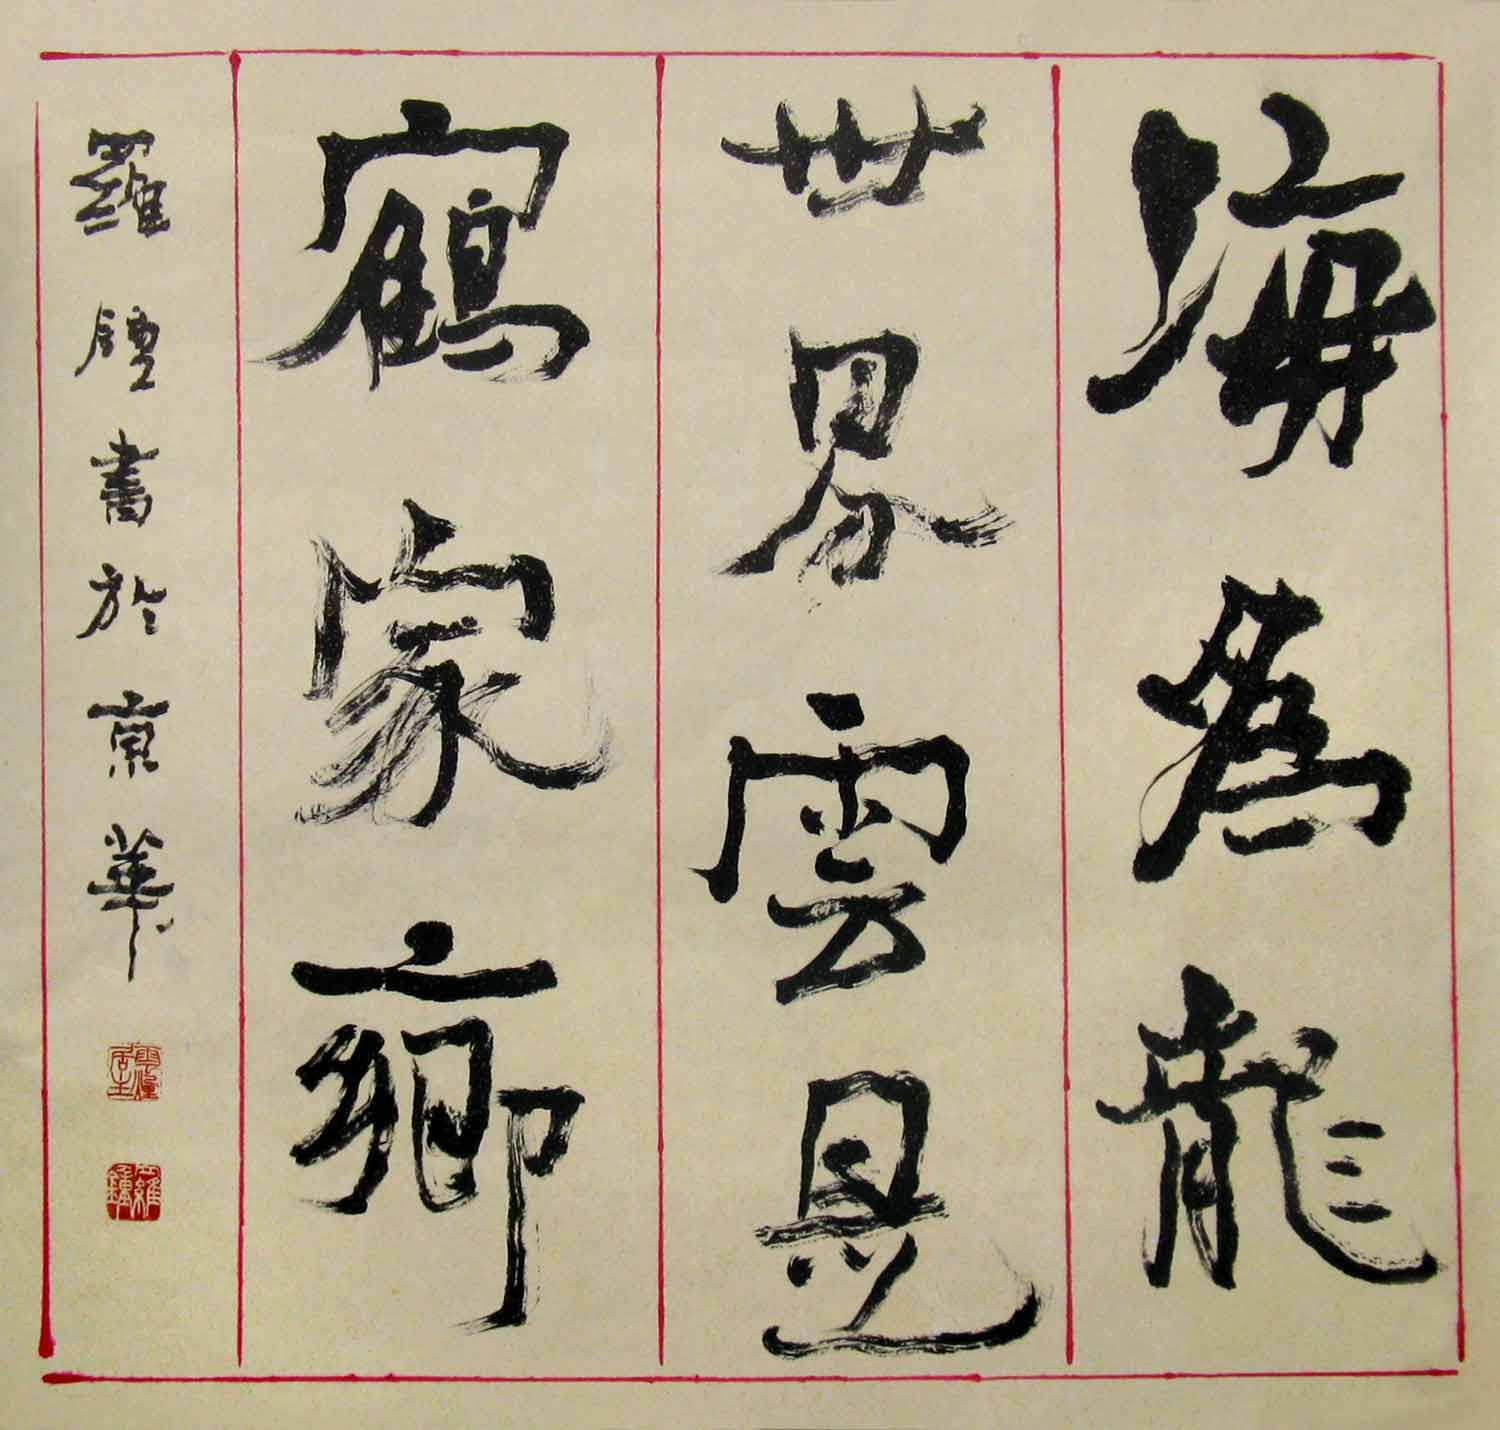 海為龍
世界雲是
鶴家鄉
羅鍾書於京華
羅鍾